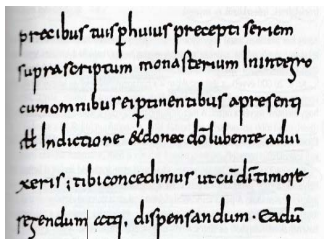 precibus tuis p huius precepti seriem
suprascriptum monasterium In integro
cum omnibus ei ptinentibus a presenti
Indictione & donec dō lubente advi
xeris; tibi concedimus ut cū dī timore
regendum atq. dispensandum. eadū